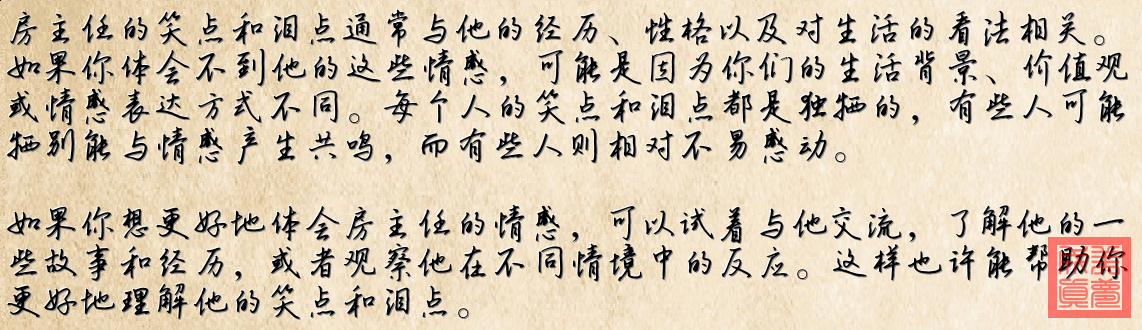 房主任的笑点和泪点通常与他的经历、性格以及对生活的看法相关。
如果你体会不到他的这些情感，可能是因为你们的生活背景、价值观
或情感表达方式不同。每个人的笑点和泪点都是独特的，有些人可能
特别能与情感产生共鸣，而有些人则相对不易感动。
如果你想更好地体会房主任的情感，可以试着与他交流，了解他的一
些故事和经历，或者观察他在不同情境中的反应。这样也许能帮助你
更好地理解他的笑点和泪点。